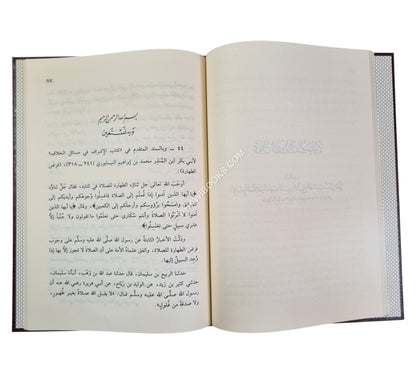 ٨٧
بسم الله الرحمن الرحيم
وبه نستعين
٤٤ ــ وبالسند المتقدم في «كتاب الإشراف في مسائل الخلاف»
لأبي بكر ابن المنذر محمد بن إبراهيم النيسابوري (٢٤١ ــ ٣١٨)، (فرض
الطهارة):
أوجَبَ الله تعالى جل ثناؤه الطهارة للصلاة في كتابه، فقال جل ثناؤه: ﴿يا أيها الذين
آمنوا إذا قمتم إلى الصلاة فاغسلوا وجوهكم وأيديكم إلى
المرافق، وامسحوا برؤوسكم وأرجلكم إلى الكعبين﴾، وقال: ﴿يا أيها الذين
آمنوا لا تقربوا الصلاة وأنتم سُكارى حتى تعلموا ما تقولون ولا جُنُباً إلا
عابري سبيلٍ حتى تغتسلوا﴾
ودلَّت الأخبار الثابتة عن رسول الله صلى الله عليه وسلم على وجوب
فرض الطهارة للصلاة، واتفق علماء الأمة على أن الصلاة لا تجزئ إلا بها إذا
وجد السبيل إليها.
حدثنا الربيع بن سليمان، قال حدثنا عبد الله بن وَهْب، أنبأنا سليمان،
حدثني كثير بن زيد، عن الوليد بن رباح، عن أبي هريرة رضي الله عنه أن
رسول الله صلى الله عليه وسلم قال: «لا يقبل الله صلاةً بغير طُهورٍ،
ولا صدقةً من غُلولٍ».